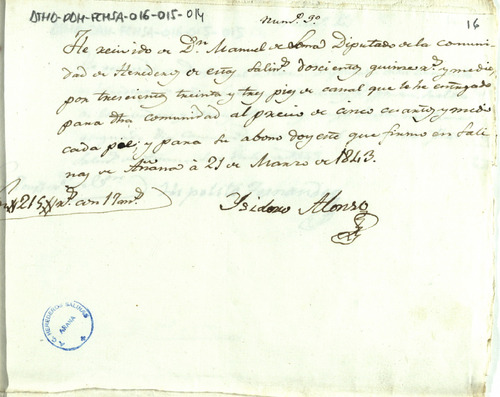 DTHO-DDH-FCHSA-016-015-014
Num.º 9.º
16
He recivido de D.n Manuel de Doscientos quince r.s y medio
Diputado de la comuni
dad de Herederos de estas Salin.s doscientos quince r.s y medio
por trescientos treinta y tres pies de canal que le he entregado
para dha comunidad al precio de cinco cuartos y medio
cada pie; y para su abono doy este que firmo en Sali
nas de Añana à 21 de Marzo de 1843.
Son 215 r.s con 17 m.s
Ysidoro Alonso
C. HEREDEROS SALINAS
AÑANA